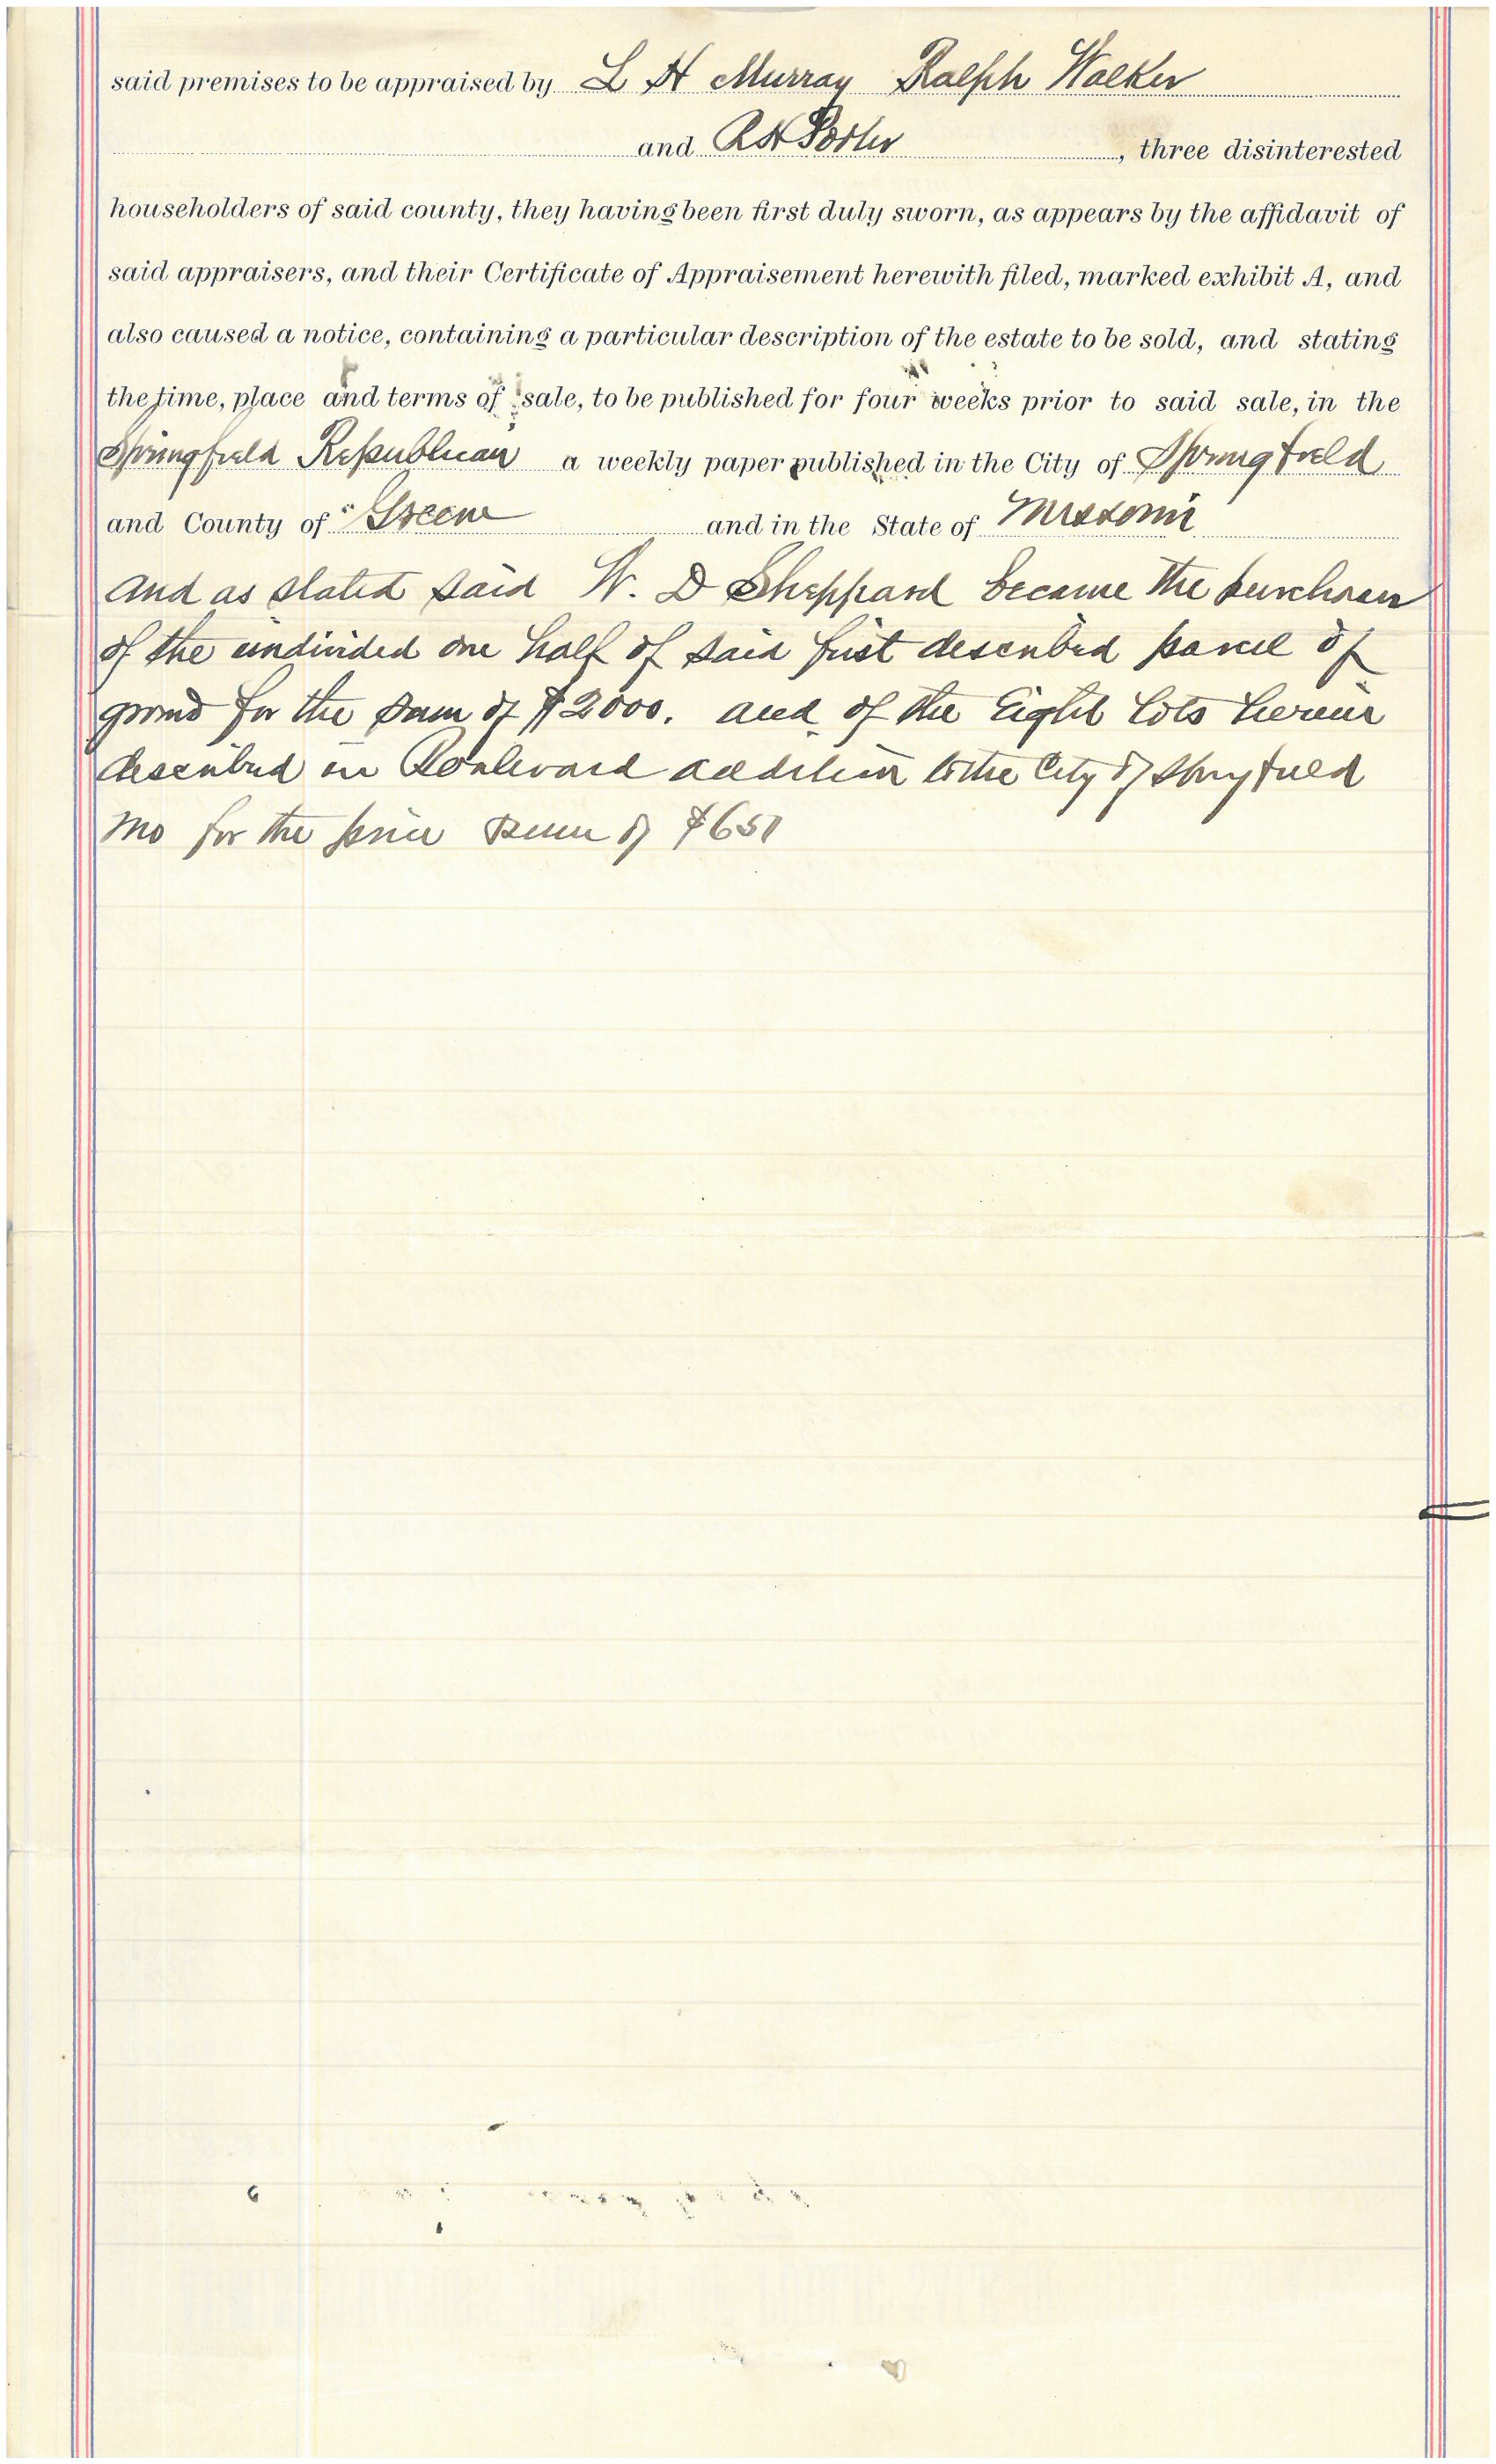 said premises to be appraised by L H Murray Ralph Walker
and R H Porter, three disinterested
householders of said county, they having been first duly sworn, as appears by the affidavit of
said appraisers, and their Certificate of Appraisement herewith filed, marked exhibit A, and
also caused a notice, containing a particular description of the estate to be sold, and stating
the time, place and terms of sale, to be published for four weeks prior to said sale, in the
Springfield Republican a weekly paper published in the City of Springfield
and County of Greene and in the State of Missouri
and as stated said W. D Sheppard became the purchaser
of the undivided one half of said first described parcel of
ground for the sum of $2000. and of the Eight Lots herein
described in Boulevard addition to the City of Springfield
Mo for the price sum of $651